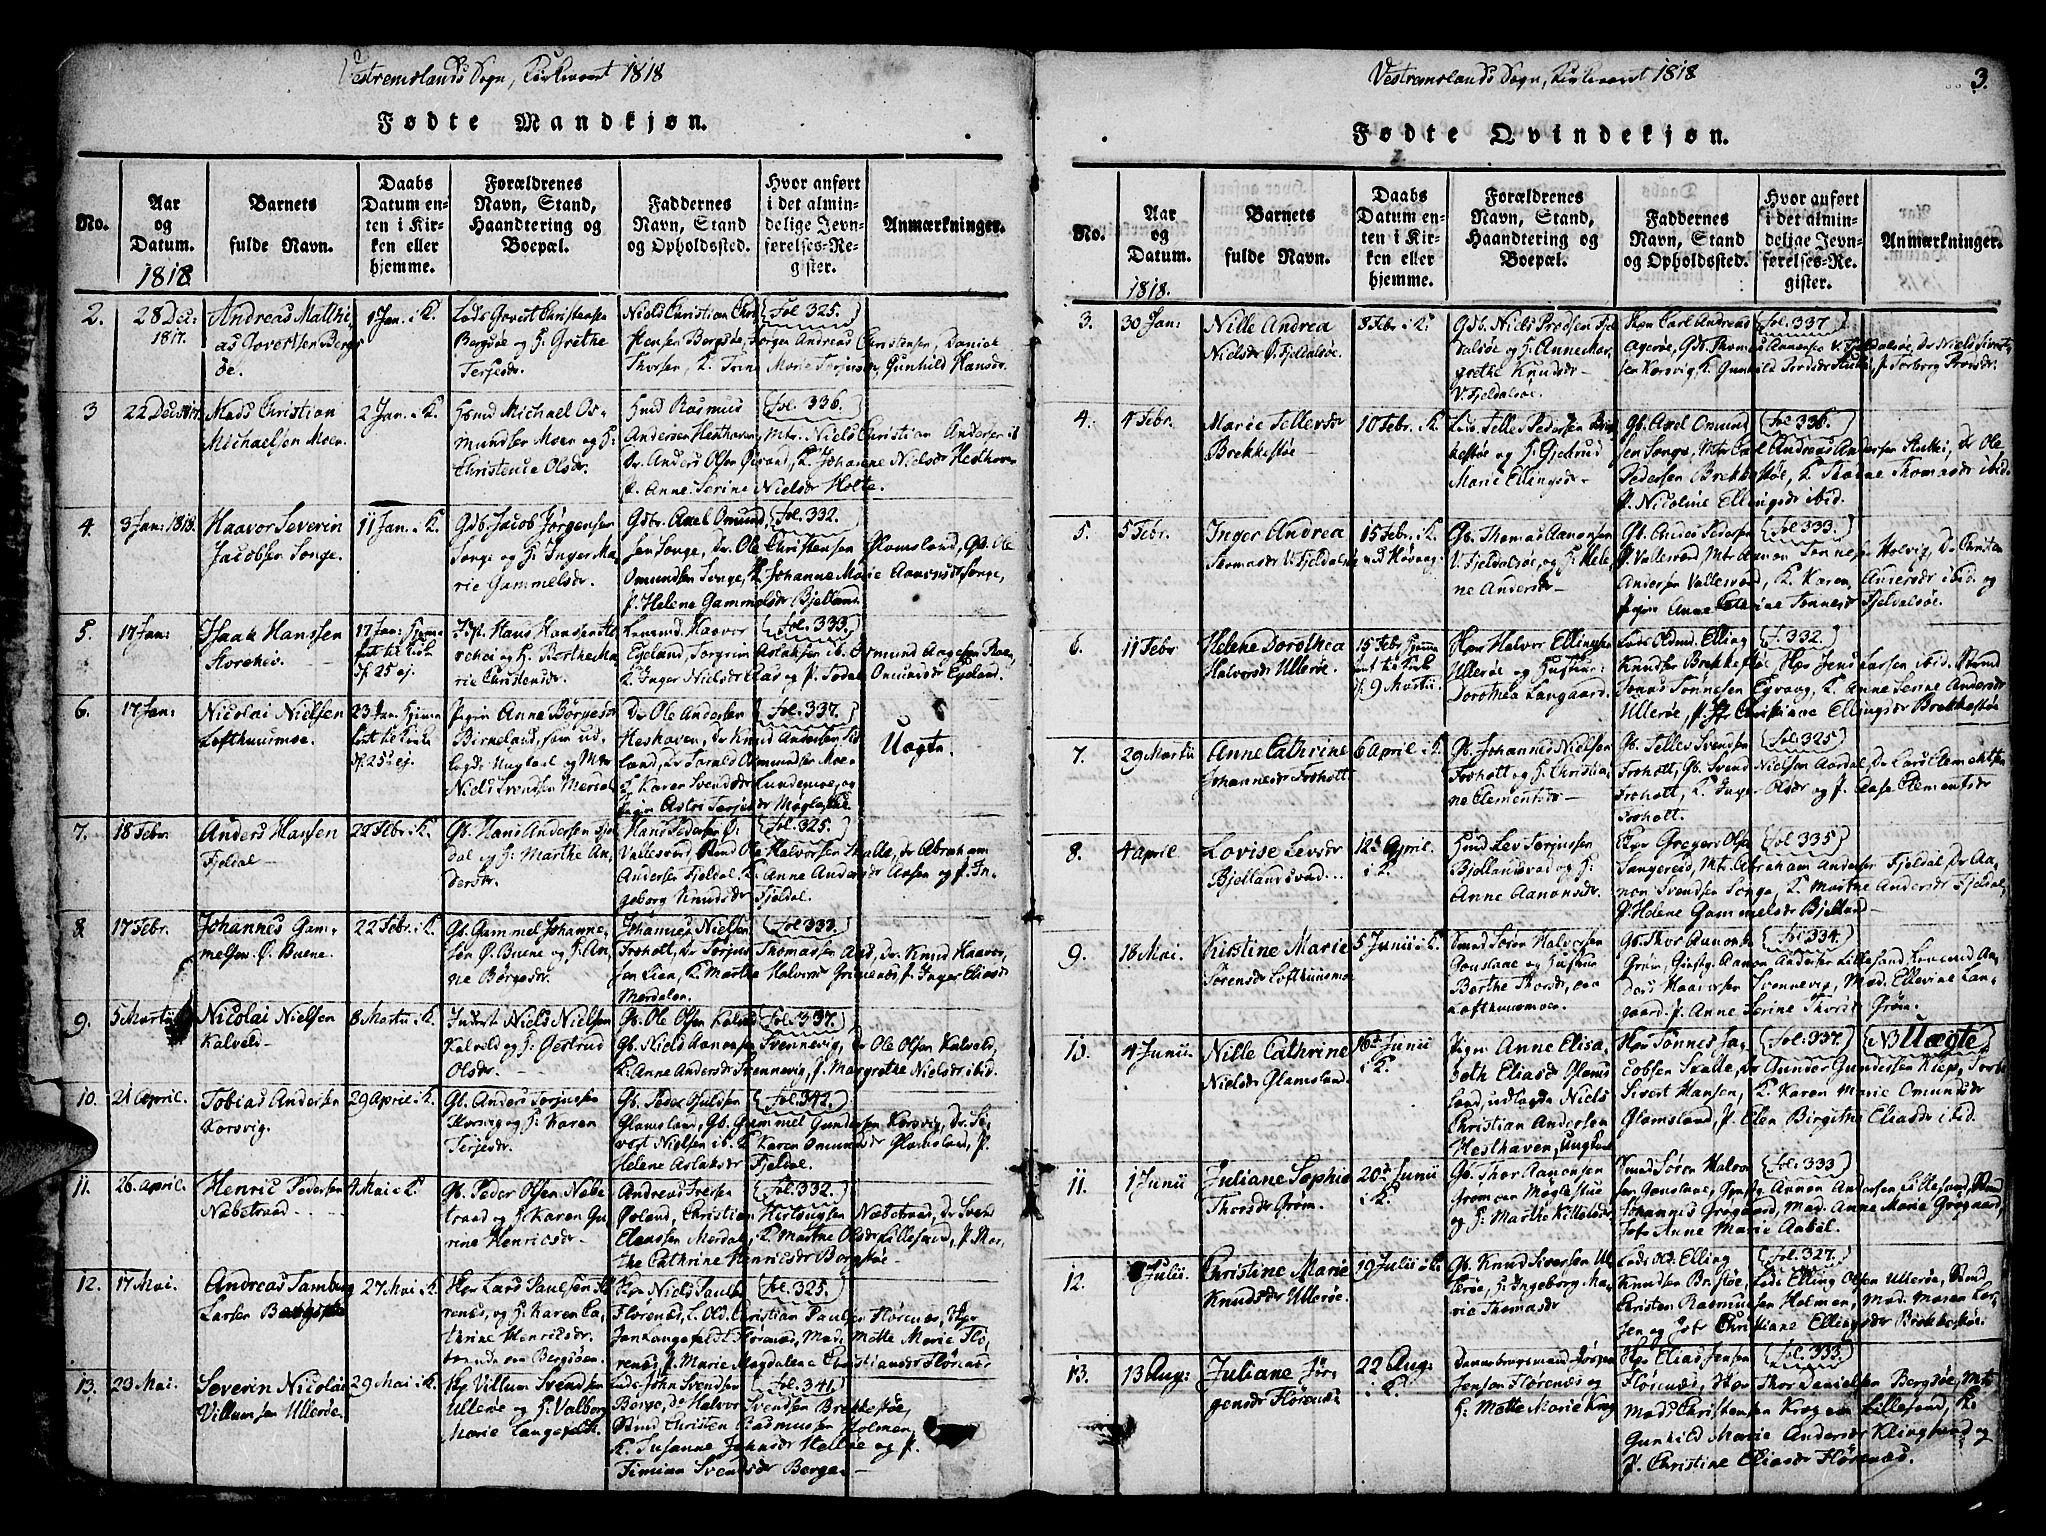 Vestremslands Sogn, Kirkeaaret 1818
Fødte Mandkjøn.
No.
Aar og Datum.
1818
Barnets fulde Navn.
Daabs Datum enten i Kirken eller hjemme.
Forældrenes Navn, Stand, Haandtering og Boepæl.
Faddernes Navn, Stand og Opholdssted.
Hvor anført i det almindelige Jevnførelses-Register.
Anmærkninger.
2. 28 Dec: 1817. Andreas Matthias Govertsen Bergsöe. 1 Jan. i K. Lods Govert Christensen Bergsöe og H: Grethe Terjesdr. Niels Christian Christensen Bergsöe, Jörgen Andreas Christensen, Daniel Thorsen, K. Trine Marie Terjusen, Gunhild Hansdr. Fol. 325.
3 22 Dec: 1817. Mads Christian Michaelsen Moen. 2 Jan. i K. Hsmd Michael Osmundsen Moen og H: Christense Olsdr. Hmd Rasmus Andersen Hesthaven, Mtr. Niels Christian Andersen ib. Dr. Anders Olsen, K. Johanne Nielsdr Hesthaven P. Anne Serine Nielsdr Holte. Fol. 336.
4. 3 Jan: 1818. Haavor Severin Jacobsen Songe. 11 Jan. i K. Gdb. Jacob Jörgensen Songe og H: Inger Marie Gammelsdr. Gdbr. Axel Omundsen Songe, Dr. Ole Christensen Glamsland, Gb. Ole Omundsen Songe, K. Johanne Marie Aanensdr Songe, P. Helene Gammelsdr Bjelland. Fol. 332.
5. 17 Jan: Isaak Hanssen Storehei. 17 Jan: hjemme fest. til Kirke 25 ej. Hans Hansen Storehei og H: Berthe Marie Christensdr. Haavor Egeland, Torgrim Aslaksen ib. Osmund Aagesen K. Inger Nielsdr Aas og P. Todal Omundsdr Egeland. Fol. 333.
6. 17 Jan: Nicolai Nielsen Lofthuusmoe. 23 Jan. hjemme fest til Kirke 25 ej. Pigen Anne Börgesdr Birkeland, som udlagde Ungkarl og Mtr. Niels Svendsen Merdal. Dr. Ole Andersen Heshaven, Dr Knud Andersen land, Dr Torald Osmundsen Moe K. Karen Svendsdr Lundemoe, og Pigen Astri Terjusdr Möglestue. Fol. 337. Uægte
7. 18 Febr. Anders Hansen Fjeldal 22 Febr. i K. Gb. Hans Andersen Fjeldal og H: Marthe Andersdr. Hans Pedersen Ø. Vallesverd, Smd Ole Halvorsen Skalle, Dr. Abraham Andersen Fjeldal K. Anne Andersdr Aasen og P. Ingeborg Knudsdr Fjeldal. Fol. 325.
8. 17 Febr. Johannes Gammelsen Ø. Buene. 22 Febr. i K. Gb. Gammel Johannesen Ø. Buene og H. Anne Börgesdr. Johannes Nielsen Froholt, Dr Terjus Thomassen Aas, Dr. Knud Haavorsen Lien, K. Marthe Halvorsdr P. Inger Eliasdr Merdalen. Fol. 333.
9. 5 Martii Nicolai Nielsen Kalveld 8 Martii i K. Inderst Niels Nielsen Kalveld og H. Giertrud Olsdr. Gb. Ole Olsen Kalveld Gb. Niels Aanonsen Svennevig, Dr Ole Olsen Kalveld, K. Anne Andersdr Svennevig, P. Margrethe Nielsdr ibid. Fol. 337.
10. 21 April. Tobias Andersen Korsvig. 29 April. i K. Gb. Anders Torjusen Korsvig og H. Karen Terjesdr. Gb. Peder Glamsland, Gb. Gammel Gundersen Korsvig, Dr. Sivert Nielsen ib. K. Karen Omundsdr Glamsland, P. Helene Aslaksdr Fjeldal. Fol. 342.
11. 26 April. Henric Pedersen Næbstraad 4 Mai i K. Gb. Peder Olsen Næbstraad og H. Karen Gurine Henricsdr. Andreas Øvland, Christian Hertsugsen Næbstraad, Dr. Svend Elenssen Merdal, K. Marthe Olsdr Lillesand, P. Marthe Cathrine Henricsdr Bergsöe. Fol. 332.
12. 17 Mai. Andreas Tamburg Larsen 27 Mai i K. Hr Lars Paulsen og H. Karen Cathrine Henricsdr. boende paa Bergsöen. Hr Niels Paulsen Flörenæs, L. Old. Christian Paulsen Flörenæs, Hr Jan Langefeldt Flörenæs, Mad. Mette Marie Flörenæs, P. Marie Magdalene Christiansdr Flörenæs Fol. 325.
13. 23 Mai. Severin Nicolai Villumsen Ulleröe. 29 Mai i K. Hr Villum Svendsen Ulleröe og H. Valborg Marie Langefeldt. Lods John Svendsen Borge, Dr Halvor Svendsen Brekkestöe, Smd Christen Rasmussen Holmen, K. Susanne Johnsdr og P. Svendsdr Borge. Fol. 341.
Vestremslands Sogn, Kirkeaaret 1818
3.
Fødte Qvindekjøn.
No.
Aar og Datum.
1818.
Barnets fulde Navn.
Daabs Datum enten i Kirken eller hjemme.
Forældrenes Navn, Stand, Haandtering og Boepæl.
Faddernes Navn, Stand og Opholdssted.
Hvor anført i det almindelige Jevnførelses-Register.
Anmærkninger.
3. 30 Jan: Nille Andrea Nielsdr V. Fjeldalsöe. 8 Febr i K. Gdb. Niels Predsen Fjeldalsöe og H: Anne Margrethe Knudsdr V. Fjeldalsöe. Carl Andreas Ageröe, Gdb. Thomas Aanonsen V. Fjeldalsöe, Dr Niels Sivertsen Korsvig, K. Gunhild P. Torborg Fol. 337
4. 4 Febr. Marie Tellevsdr Brekkestöe 10 Febr. i K. Tellev Pedersen Brekkestöe og H. Gjertrud Marie Ellingsdr. Gb. Axel Omundsen Songe, Mtr Carl Andreas Andersen Dr Ole Pedersen Brekkestöe, K. Thomasdr ibid. P. Nicoline Ellingsdr ibid. Fol 336.
5. 5 Febr. Inger Andrea Thomasdr V. Fjeldalsöe 15 Febr. i K. ved Høvaag Gb. Thomas Aanonsen V. Fjeldalsöe, og H. Helene Andersdr. Gb. Anders Pedersen Vallesverd, Mtr Aanon Tönnesen Holvig, Dr Christen Andersen Vallesverd, K. Karen Andersdr ibid. og Pigen Anne Cathrine Tönnesdr Fjeldalsöe. Fol. 333.
6. 11 Febr. Helene Dorothea Halvorsdr Ulleröe. 15 Febr hjemme fest til Kirke d. 9 Martii. Hr Halvor Ellingsen Ulleröe og Hustru: Dorothea Langaard. Lods Oldmd. Elling Knudsen Brekkestöe, Hr Jens Larsen ibid. Smd Jonas Tönnesen Eyvaag, K. Anne Serine Andersdr Ulleröe, P. Christiane Ellingsdr Brekkestöe Fol. 332.
7. 29 Martii Anne Cathrine Johannesdr Froholt 6 April i K. Gb. Johannes Nielsen Froholt og H. Christiane Clementsdr. Gb. Tellev Svendsen Froholt, Gb. Svend Nielsen Aardal, Dr Lars Clementsen Froholt, K. Inger Olsdr og P. Aase Clementsdr Froholt. Fol. 325
8. 4 April Lovise Levsdr Bjellandsvad... 12te April. i K. Hmd Lev Terjusen Bjellandsvad og H. Anne Aanonsdr. Hr Gregers Olsen Sangereid, Mt. Abraham Andersen Fjeldal, Dr Aanon Svendsen Songe, K. Marthe Andersdr Fjeldal, P. Helene Gammelsdr Bjelland. Fol 335
9. 18 Mai. Kirstine Marie Sörensdr Lofthuusmoe 5 Junii i K. Smd Sören Halvorsen Gauslane og Hustrue Berthe Thorsdr, paa Lofthuusmoe. Gb. Thor Aanonsen Gröm, Giestg. Aanon Andersen Lillesand, Anders Haavorsen Svennevig, Mad. Ellevine Langaard, P. Anne Serine Thorsdr Gröm. Fol 334.
10. 4 Junii. Nille Cathrine Nielsdr Glamsland. 16de Junii i K. Pigen Anne Elisabeth Eliasdr Glamsland, udlagde Niels Christian Andersen Hesthaven, Ungkarl Hr Tönnes Jacobsen Skalle, Dr Gunder Gundersen Kiep, Sivert Hansen, K. Karen Marie Omundsdr Glamsland, P. Elen Birgithe Eliasdr ibid. Fol: 337. NB Uægte
11. 1 Junii Juliane Sophie Thorsdr Gröm. 20de Junii i K. Gb. Thor Aanonsen Gröm paa Möglestue og H. Marthe Killelsdr. Smd Sören Halvorsen Gauslane, Gjestg. Aanon Andersen Lillesand, Smd Johannes Grögaard, Mad. Anne Marie Grögaard, Jofr Anne Marie Aabel. Fol: 333
12. Julii. Christine Marie Knudsdr Ulleröe. 19 Julii i K. Gb. Knud Siversen Ulleröe, H. Ingeborg Marie Thomasdr Lods Old. Elling Knudsen Lods Elling Olsen Ulleröe, Smd Christen Rasmussen Holmen, Mad. Maren Larsen og Jofr Christiane Ellingsdr Brekkestöe. Fol. 327.
13. 13 Aug: Juliane Jörgensdr Flörenæs 22 Aug: i K. Dannebrogsmand Jörgen Jensen Flörenæs og H. Mette Marie Krog Hr Elias Jensen Flörenæs, Hr Thor Danielsen Bergsöe, Mt. Mads Christensen Krog paa Lillesand, K. Gunhild Marie Andersdr Klingsund og P. Christine Eliasdr Flörenæs. Fol. 333.